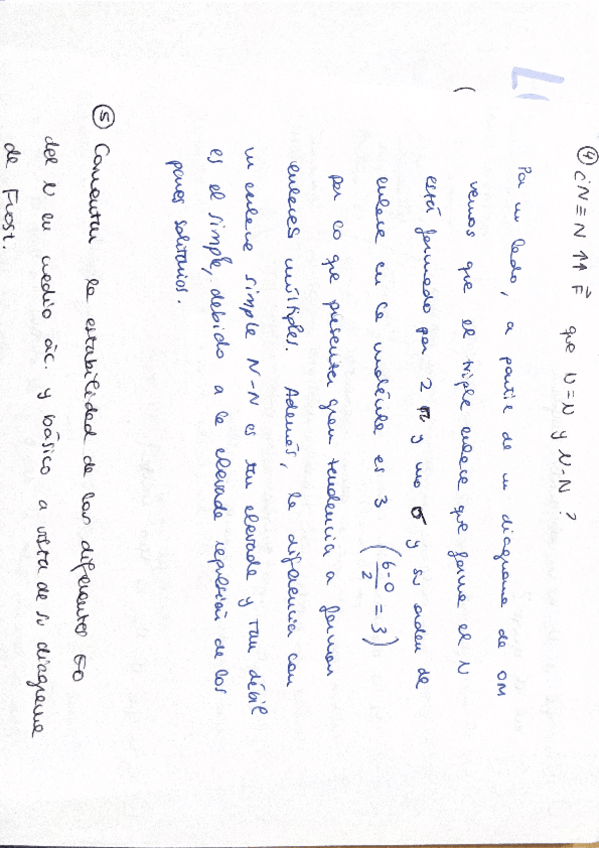 ④ ¿N≡N ↑↑ F que N=N y N-N ?
Por un lado, a partir de un diagrama de OM
vemos que el triple enlace que forma el N
está formado por 2 π y uno σ y su orden de
enlace en la molécula es 3 (6-0/2 = 3)
por lo que presenta gran tendencia a formar
enlaces múltiples. Además, la diferencia con
un enlace simple N-N es tan elevada y tan débil
es el simple, debido a la elevada repulsión de los
pares solitarios.
⑤ Comentar la estabilidad de los diferentes EO
del N en medio ác. y básico a vista de su diagrama
de Frost.